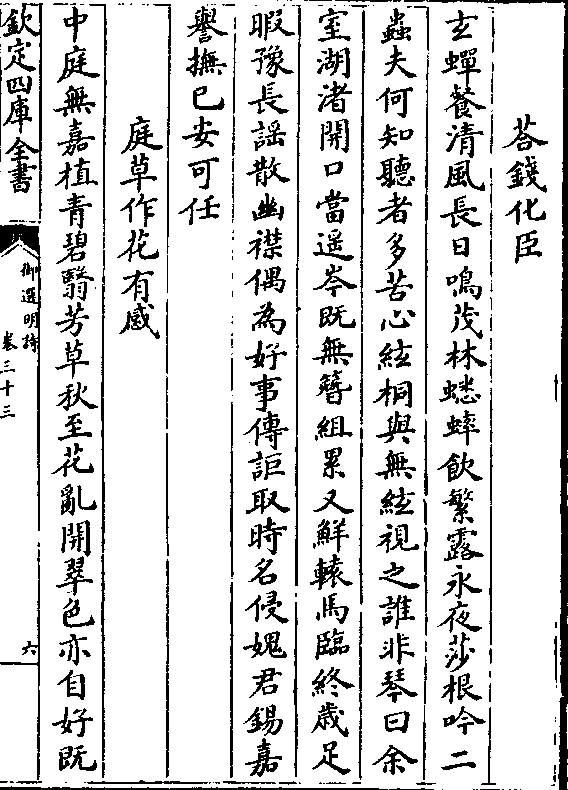 荅錢化臣
玄蟬餐清風長日鳴茂林蟋蟀飲繁露永夜莎根吟二
蟲夫何知聽者多苦心絃桐與無絃視之誰非琴曰余
室湖渚開口當遥岑既無簪組累又鮮轅馬臨終歳足
暇豫長謡散幽襟偶為好事傳詎取時名侵媿君錫嘉
譽撫已安可任
庭草作花有感
中庭無嘉植青碧翳芳草秋至花亂開翠色亦自好既
欽定四庫全書
御選明詩
卷三十三
六